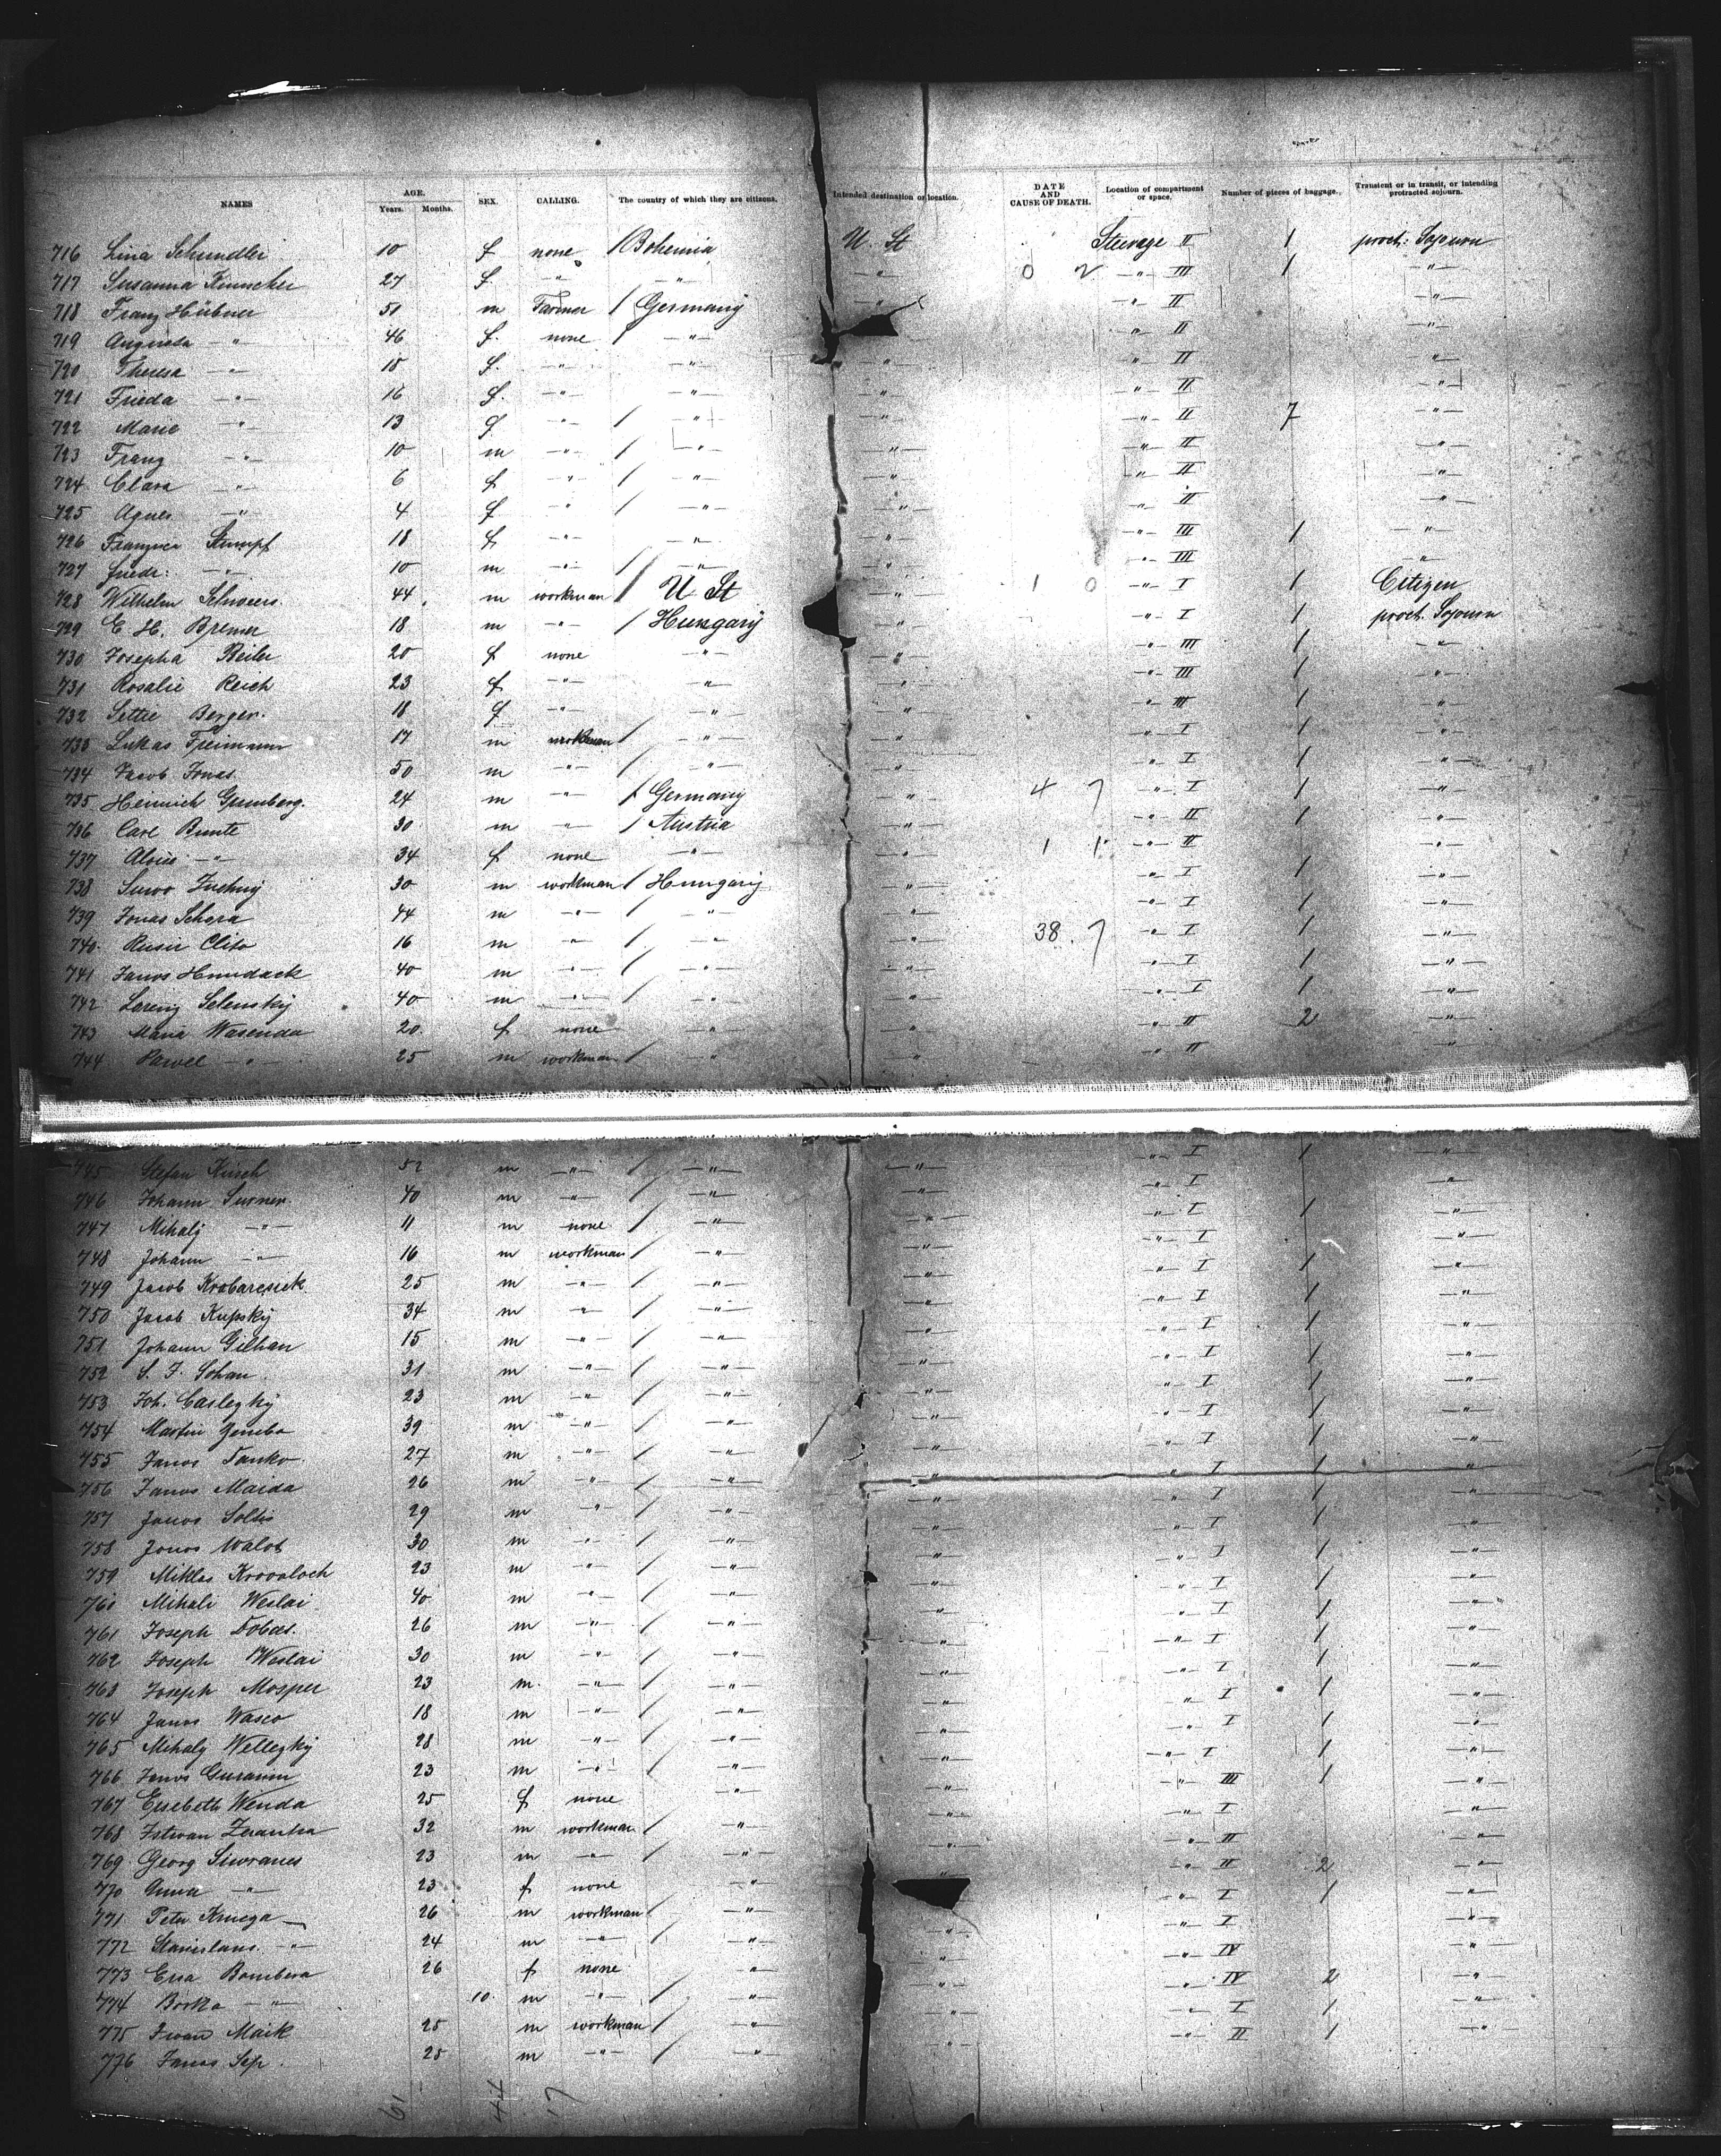 NAMES AGE. Years. Months. SEX. CALLING. The country of which they are citizens. Intended destination or location. DATE AND CAUSE OF DEATH. Location of compartment or space. Number of pieces of baggage. Transient or in transit, or intending protracted sojourn.
716 Lina Schindler 10 f none / Bohemia U. St Steerage II 1 proct: Sojourn
717 Susanna 27 f. -"- -"- -"- 0 2 -"- III 1 -"-
718 Franz Hübner 51 m Farmer / Germany -"- -"- II -"-
719 Augusta -"- 46 f. none / -"- -"- II -"-
720 Theresa -"- 18 f. -"- -"- -"- -"- II -"-
721 Frieda -"- 16 f. -"- -"- -"- -"- II -"-
722 Marie -"- 13 f -"- / -"- -"- -"- II 7 -"-
723 Franz -"- 10 m -"- / -"- -"- -"- II -"-
724 Clara -"- 6 f -"- / -"- -"- -"- II -"-
725 Agnes -"- 4 f -"- / -"- -"- -"- II -"-
726 Stumpf 18 f -"- -"- -"- -"- III 1 -"-
727 Friedr: -"- 10 m -"- / -"- -"- -"- III -"-
728 Wilhelm 44 m workman / U St -"- 1 0 -"- I 1 Citizen
729 E. H. Bremer 18 m -"- / Hungary -"- -"- I 1 proct. Sojourn
730 Josepha Beiler 20 f none -"- -"- -"- III 1 -"-
731 Rosalie Reich 23 f -"- -"- -"- -"- III 1 -"-
732 Settie Berger. 18 f -"- -"- -"- -"- III 1 -"-
733 Lukas Freimann 17 m workman / -"- -"- -"- I 1 -"-
734 Jacob Jonas 50 m -"- / -"- -"- -"- I 1 -"-
735 Heinrich Grunberg. 24 m -"- / Germany -"- 4 7 -"- I 1 -"-
736 Carl Bunte 30 m -"- / Austria -"- -"- II 1 -"-
737 Aloise -"- 34 f none -"- -"- 1 1 -"- II -"-
738 30 m workman / Hungary -"- -"- I 1 -"-
739 Jonas Schera 44 m -"- / -"- -"- -"- I 1 -"-
740. Clito 16 m -"- / -"- -"- 38. 7 -"- I 1 -"-
741 Janos 40 m -"- / -"- -"- -"- I 1 -"-
742 Selensky 40 m -"- / -"- -"- -"- I 1 -"-
743 Maria Wasenda 20. f none -"- -"- -"- II 2 -"-
744 Pawel -"- 25 m workman / -"- -"- -"- II -"-
745 Stefan Kusch 52 m -"- / -"- -"- -"- I 1 -"-
746 Johann Surner 40 m -"- / -"- -"- -"- I -"-
747 Mihaly -"- 11 m none / -"- -"- -"- I 1 -"-
748 Johann -"- 16 m workman / -"- -"- -"- I -"-
749 Jacob 25 m -"- / -"- -"- -"- I 1 -"-
750 Jacob Kupsky 34 m -"- / -"- -"- -"- I 1 -"-
751 Johann Gilhan 15 m -"- / -"- -"- -"- I 1 -"-
752 S. J. Sohan. 31 m -"- / -"- -"- -"- I 1 -"-
753 Joh. Caslegky 23 m -"- / -"- -"- -"- I 1 -"-
754 Martin 39 m -"- / -"- -"- -"- I 1 -"-
755 Janos Danko 27 m -"- / -"- -"- -"- I 1 -"-
756 Janos Maida 26 m -"- / -"- -"- -"- I 1 -"-
757 Janos Soltis 29 m -"- / -"- -"- -"- I 1 -"-
758 Janos Walot 30 m -"- / -"- -"- -"- I 1 -"-
759 Miklas 23 m -"- / -"- -"- -"- I 1 -"-
760 Mihali Weslai 40 m -"- / -"- -"- -"- I 1 -"-
761 Joseph Dobas. 26 m -"- / -"- -"- -"- I 1 -"-
762 Joseph Weslai 30 m -"- / -"- -"- -"- I 1 -"-
763 Joseph Mosper 23 m. -"- / -"- -"- -"- I 1 -"-
764 Janos Wasco 18 m -"- / -"- -"- -"- I 1 -"-
765 Mihaly Wellegky 28 m -"- / -"- -"- -"- I 1 -"-
766 Janos 23 m -"- / -"- -"- -"- III 1 -"-
767 Ersebeth Wenda 25 f none -"- -"- -"- I -"-
768 Istwan 32 m workman / -"- -"- -"- II -"-
769. Georg 23 m -"- / -"- -"- -"- II 2 -"-
770 Anna -"- 23 f none -"- -"- I 1 -"-
771 Peter 26 m workman / -"- -"- -"- I -"-
772 Stanislaus -"- 24 m -"- / -"- -"- -"- IV -"-
773 26 f none -"- -"- -"- IV 2 -"-
774 Borka -"- 10. m -"- / -"- -"- -"- I 1 -"-
775 Iwan Maik 25 m workman / -"- -"- -"- II 1 -"-
776 Janos Sep. 25 m -"- / -"-
61 44 17